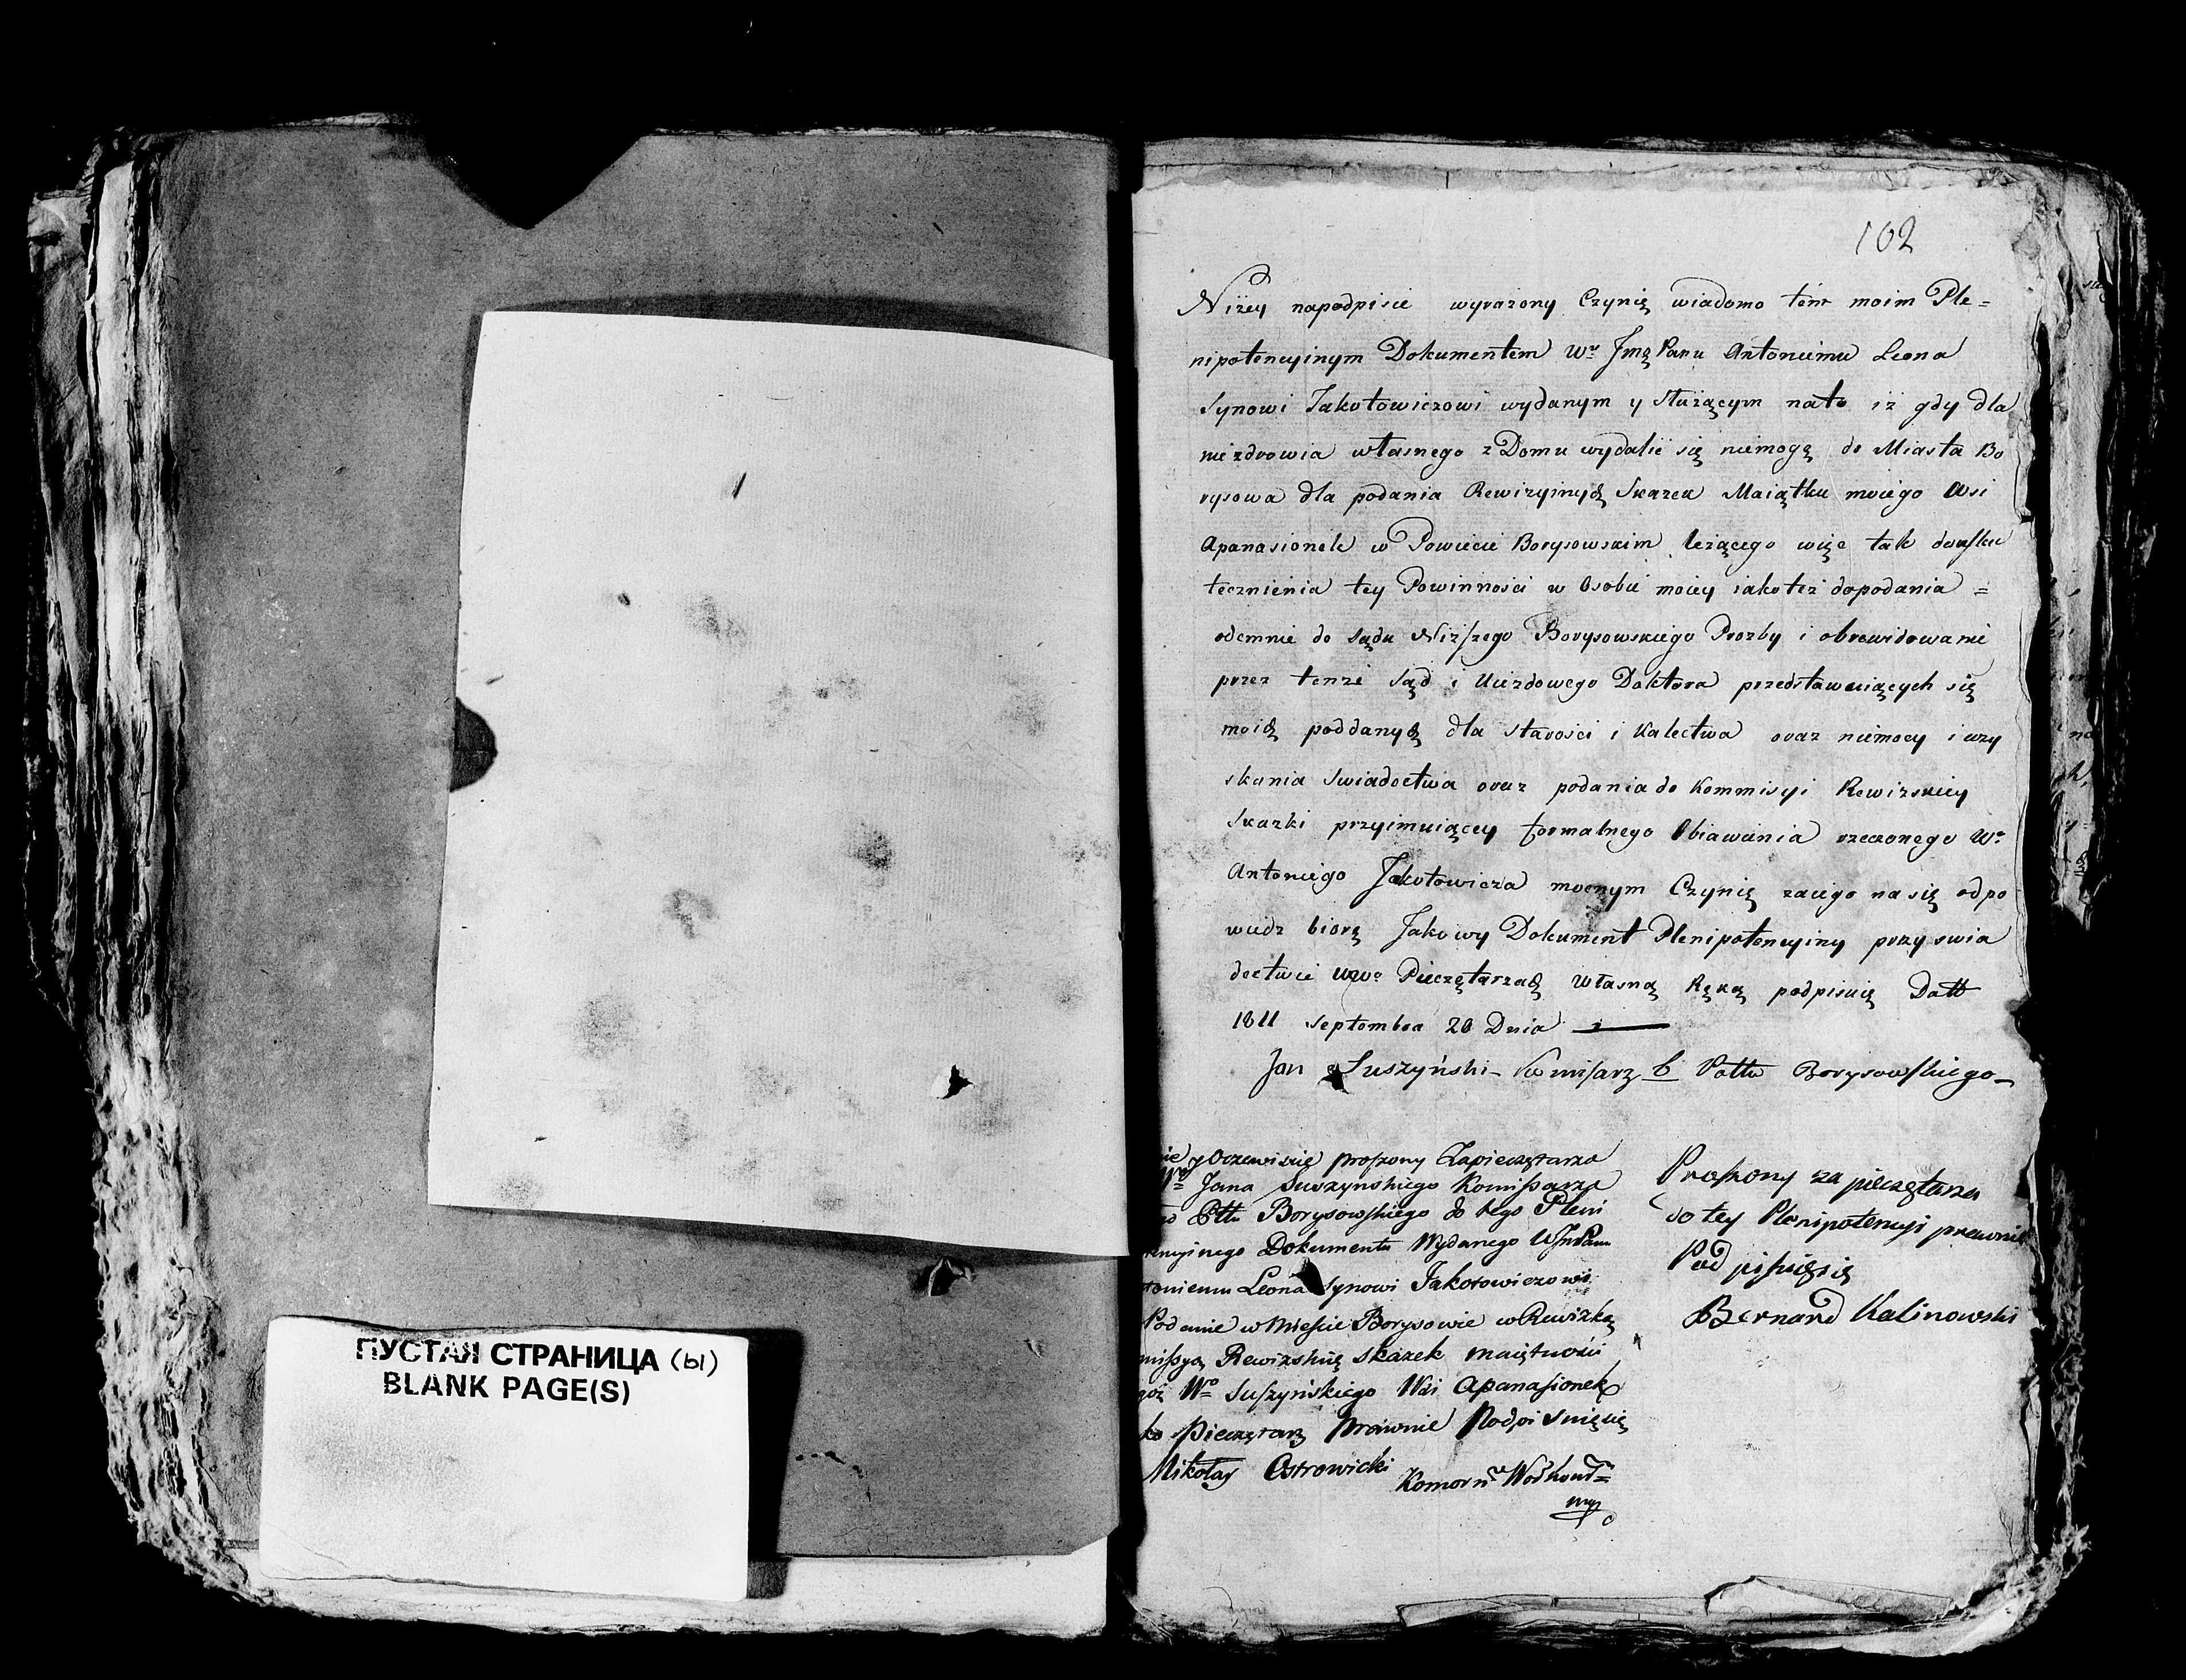 ПУСТАЯ СТРАНИЦА (ы)
BLANK PAGE(S)
102
Niżey napodpisie wyrażony Czynię wiadomo tém moim Ple=
nipotencyinym Dokumentem Wu Jmę Panu Antoniemu Leona
Synowi Jakotowiczowi wydanym y służącym nato iż gdy dla
niezdrowia własnego z Domu wydalić się niemogę do Miasta Bo
rysowa dla podania Rewizyinych Skazek Maiątku moiego Wsi
Apanasionek w Powiecie Borysowskim leżącego więc tak dousku
tecznienia tey Powinności w Osobie moiey iako też dopodania =
odemnie do Sądu Niższego Borysowskiego Prozby i obrewidowanie
przez tenże Sąd i Uiezdowego Doktora przedstawuiących się
moich poddanych dla starości i Kalectwa oraz niemocy i uzy
skania Swiadectwa oraz podania do Kommisyi Rewizskiey
Skazki przyimuiącey formalnego Obiawienia rzeczonego Wo
Antoniego Jakotowicza mocnym Czynię zaiego na się odpo
wiedz biorę Jakowy Dokument Plenipotencyiny przy swia
dectwie WWo Pieczętarzach Własną Ręką podpisuię Datt
1811 Septembra 20 Dnia
Jan Suszyński Komisarz b Pottu Borysowskiego
ie y Oczewiście proszony Zapieczętarza
Wo Jana Suszynskiego Komissarza
Pttu Borysowskiego do tego Pleni
encyinego Dokumentu Wydanego WJmPanu
toniemu Leona Synowi Jakotowiczowi
Podanie w Mieście Borysowie w Rewizką
missyą Rewizskię skazek maiętności
goż Wo Suszyńskiego Wsi Apanasionek
ko Pieczętarz Prawnie Podpisuięsię
Mikołay Ostrowicki Komorn
Proszony za pieczętarza
do tey Plenipotencyi prawnie
Podpisuięsię
Bernard Kalinowski